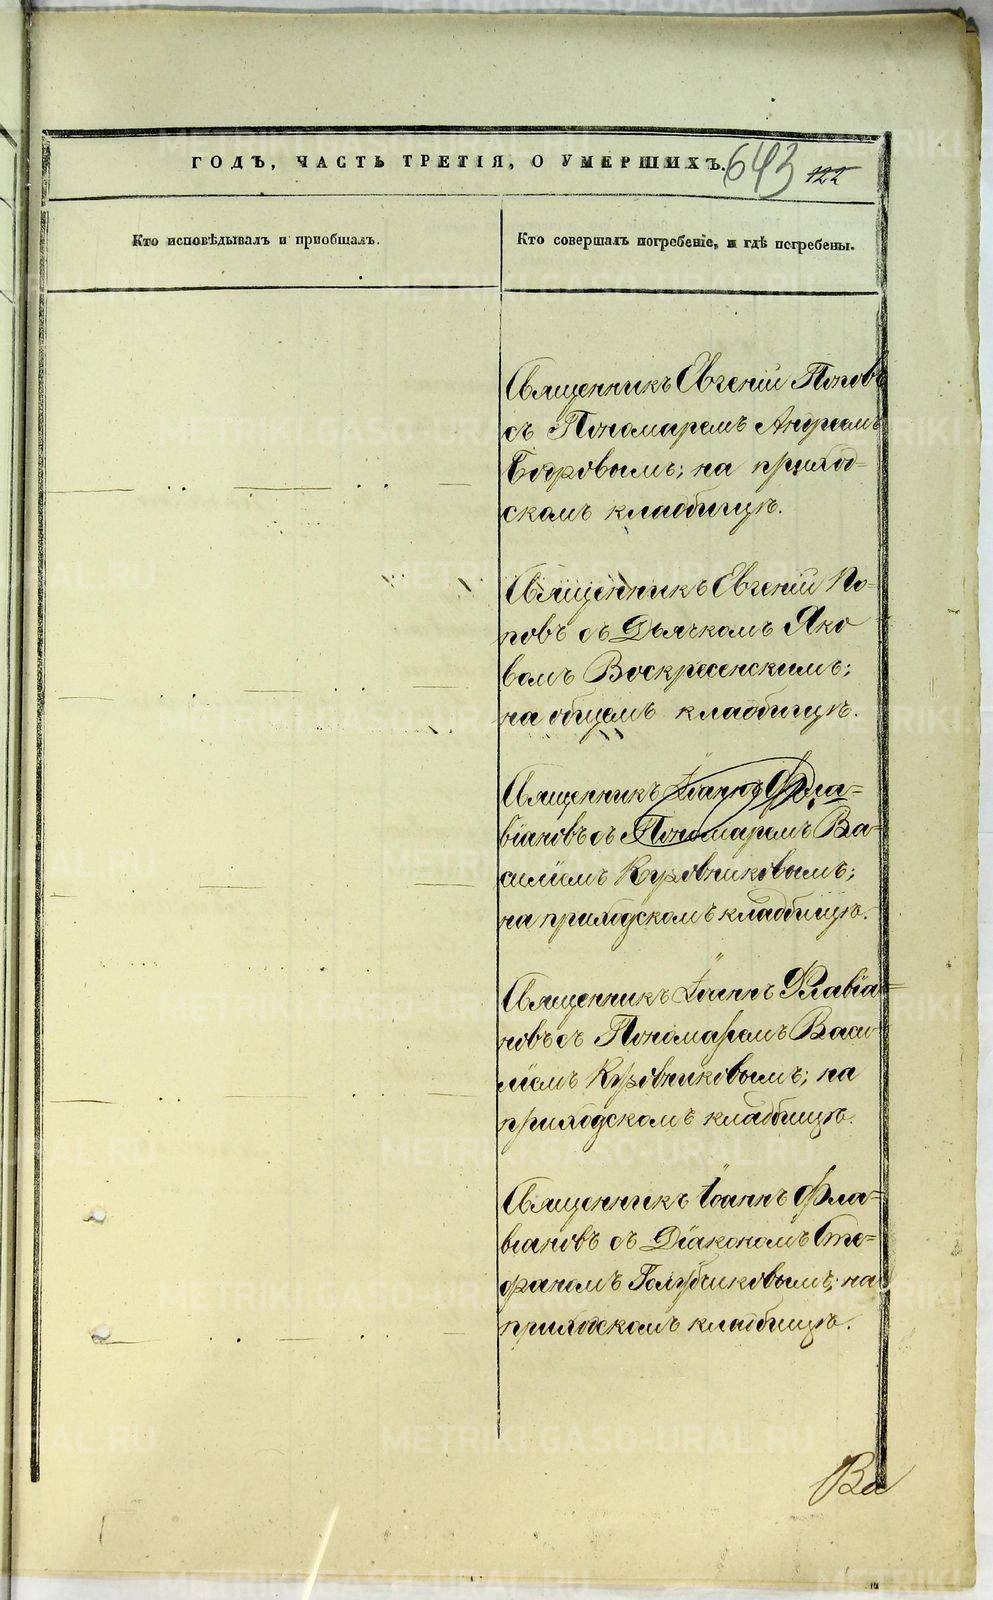 ГОДЪ, ЧАСТЬ ТРЕТІЯ, О УМЕРШИХЪ. 643 122
Кто исповѣдывалъ и пріобщалъ.
Кто совершалъ погребеніе, и гдѣ погребены.
Священникъ Евгеній Поповъ
съ Пономаремъ Андреемъ
Бобровымъ; на приход-
скомъ кладбищѣ.
Священникъ Евгеній По-
повъ съ Дьячкомъ Яко
вомъ Воскресенскимъ;
на общемъ кладбищѣ.
Священникъ Іоаннъ Фла-
віановъ съ Пономаремъ Ва-
силіемъ Кузовниковымъ;
на приходскомъ кладбищѣ.
Священникъ Іоаннъ Флавіа-
новъ съ Пономаремъ Васи-
ліемъ Кузовниковымъ; на
приходскомъ кладбищѣ.
Священникъ Іоаннъ Фла-
віановъ съ Діакономъ Сте-
фаномъ Голубчиковымъ; на
приходскомъ кладбищѣ.
Ва
METRIKI.GASO-URAL.RU